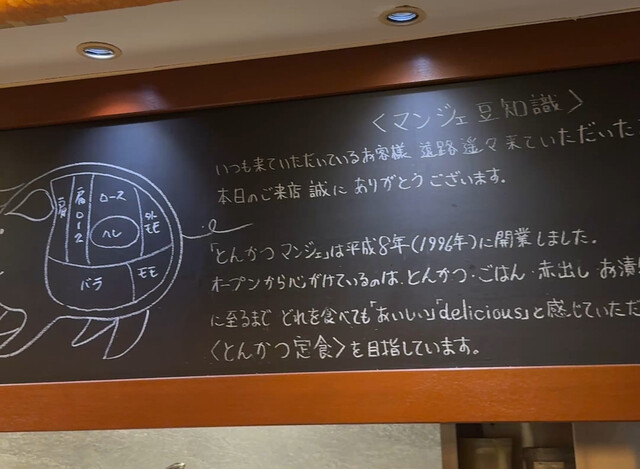 〈マンジェ豆知識〉
いつも来ていただいているお客様 遠路遙々来ていただいた
本日のご来店 誠に ありがとうございます。
「とんかつ マンジェ」は平成8年(1996年)に開業しました。
オープンから心がけているのは、とんかつ・ごはん・赤出し・お漬
に至るまで どれを食べても「おいしい」「delicious」と感じていただ
〈とんかつ定食〉を目指しています。
肩
肩ロース
ロース
ヒレ
外モモ
バラ
モモ